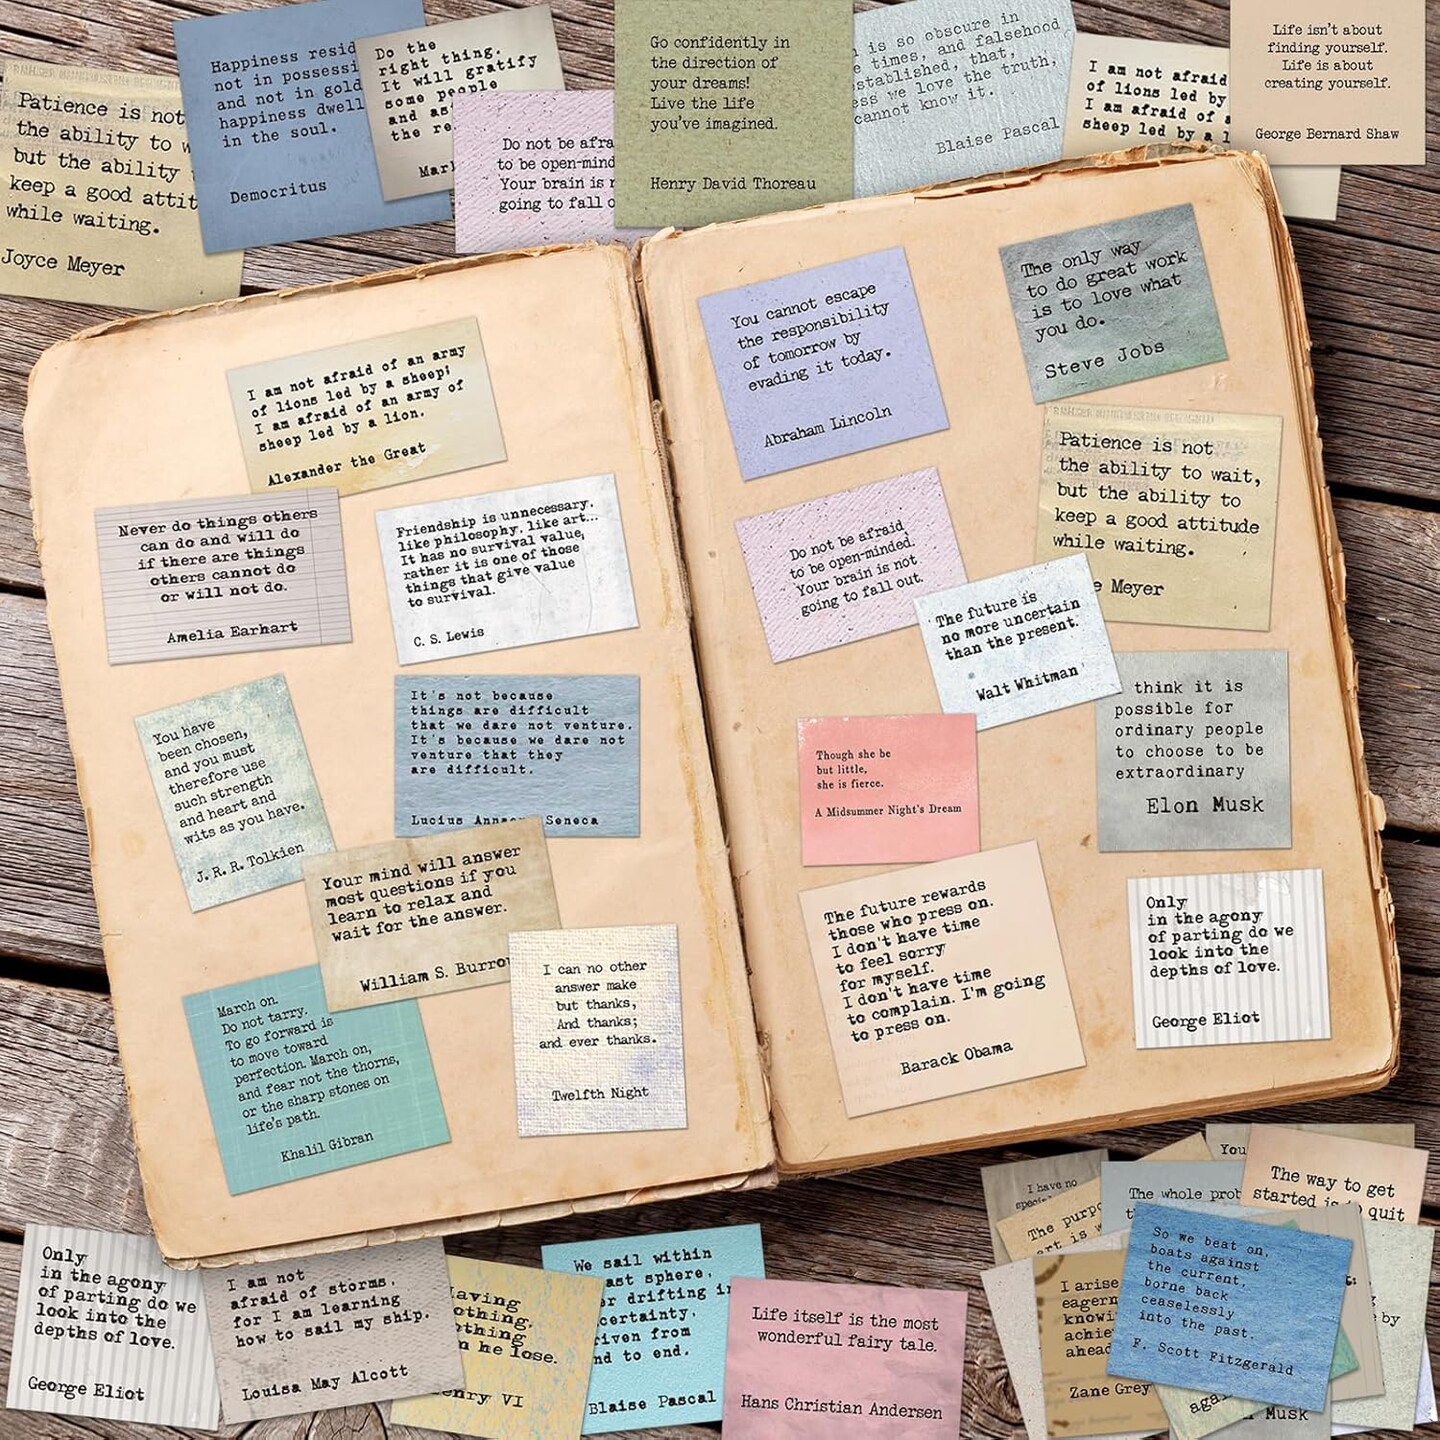 Patience is not
the ability to
but the ability
keep a good
while waiting.
Joyce Meyer
Happiness
not in
and not in gold
happiness
in the soul.
Democritus
Do the
right thing.
It will gratify
some people
and
the
Do not be
to be
Your brain is
going to fall
Go confidently in
the direction of
your dreams!
Live the life
you've imagined.
Henry David Thoreau
is so obscure in
times, and falsehood
established, that,
we love the truth,
cannot know it.
Blaise Pascal
I am not afraid
of lions led by
I am afraid of a
sheep led by a
Life isn't about
finding yourself.
Life is about
creating yourself.
George Bernard Shaw
I am not afraid of an army
of lions led by a sheep;
I am afraid of an army of
sheep led by a lion.
Alexander the Great
Never do things others
can do and will do
if there are things
others cannot do
or will not do.
Amelia Earhart
Friendship is unnecessary,
like philosophy, like art...
It has no survival value;
rather it is one of those
things that give value
to survival.
C. S. Lewis
You have
been chosen,
and you must
therefore use
such strength
and heart and
wits as you have.
J. R. R. Tolkien
It's not because
things are difficult
that we dare not venture.
It's because we dare not
venture that they
are difficult.
Lucius Seneca
Your mind will answer
most questions if you
learn to relax and
wait for the answer.
William S.
March on.
Do not tarry.
To go forward is
to move toward
perfection. March on,
and fear not the thorns,
or the sharp stones on
life's path.
Khalil Gibran
I can no other
answer make
but thanks,
And thanks;
and ever thanks.
Twelfth Night
You cannot escape
the responsibility
of tomorrow by
evading it today.
Abraham Lincoln
The only way
to do great work
is to love what
you do.
Steve Jobs
Do not be afraid
to be open-minded.
Your brain is not
going to fall out.
Patience is not
the ability to wait,
but the ability to
keep a good attitude
while waiting.
Meyer
The future is
no more uncertain
than the present.
Walt Whitman
think it is
possible for
ordinary people
to choose to be
extraordinary
Elon Musk
Though she be
but little,
she is fierce.
A Midsummer Night's Dream
The future rewards
those who press on.
I don't have time
to feel sorry
for myself.
I don't have time
to complain. I'm going
to press on.
Barack Obama
Only
in the agony
of parting do we
look into the
depths of love.
George Eliot
Only
in the agony
of parting do we
look into the
depths of love.
George Eliot
I am not
afraid of storms,
for I am learning
how to sail my ship.
Louisa May Alcott
Having
he lose.
VI
We sail within
sphere,
drifting in
end to end.
Blaise Pascal
Life itself is the most
wonderful fairy tale.
Hans Christian Andersen
I have no
The
You
The whole
The way to get
started is quit
I arise
Zane Grey
So we beat on,
boats against
the current,
borne back
ceaselessly
into the past.
F. Scott Fitzgerald
by
Musk